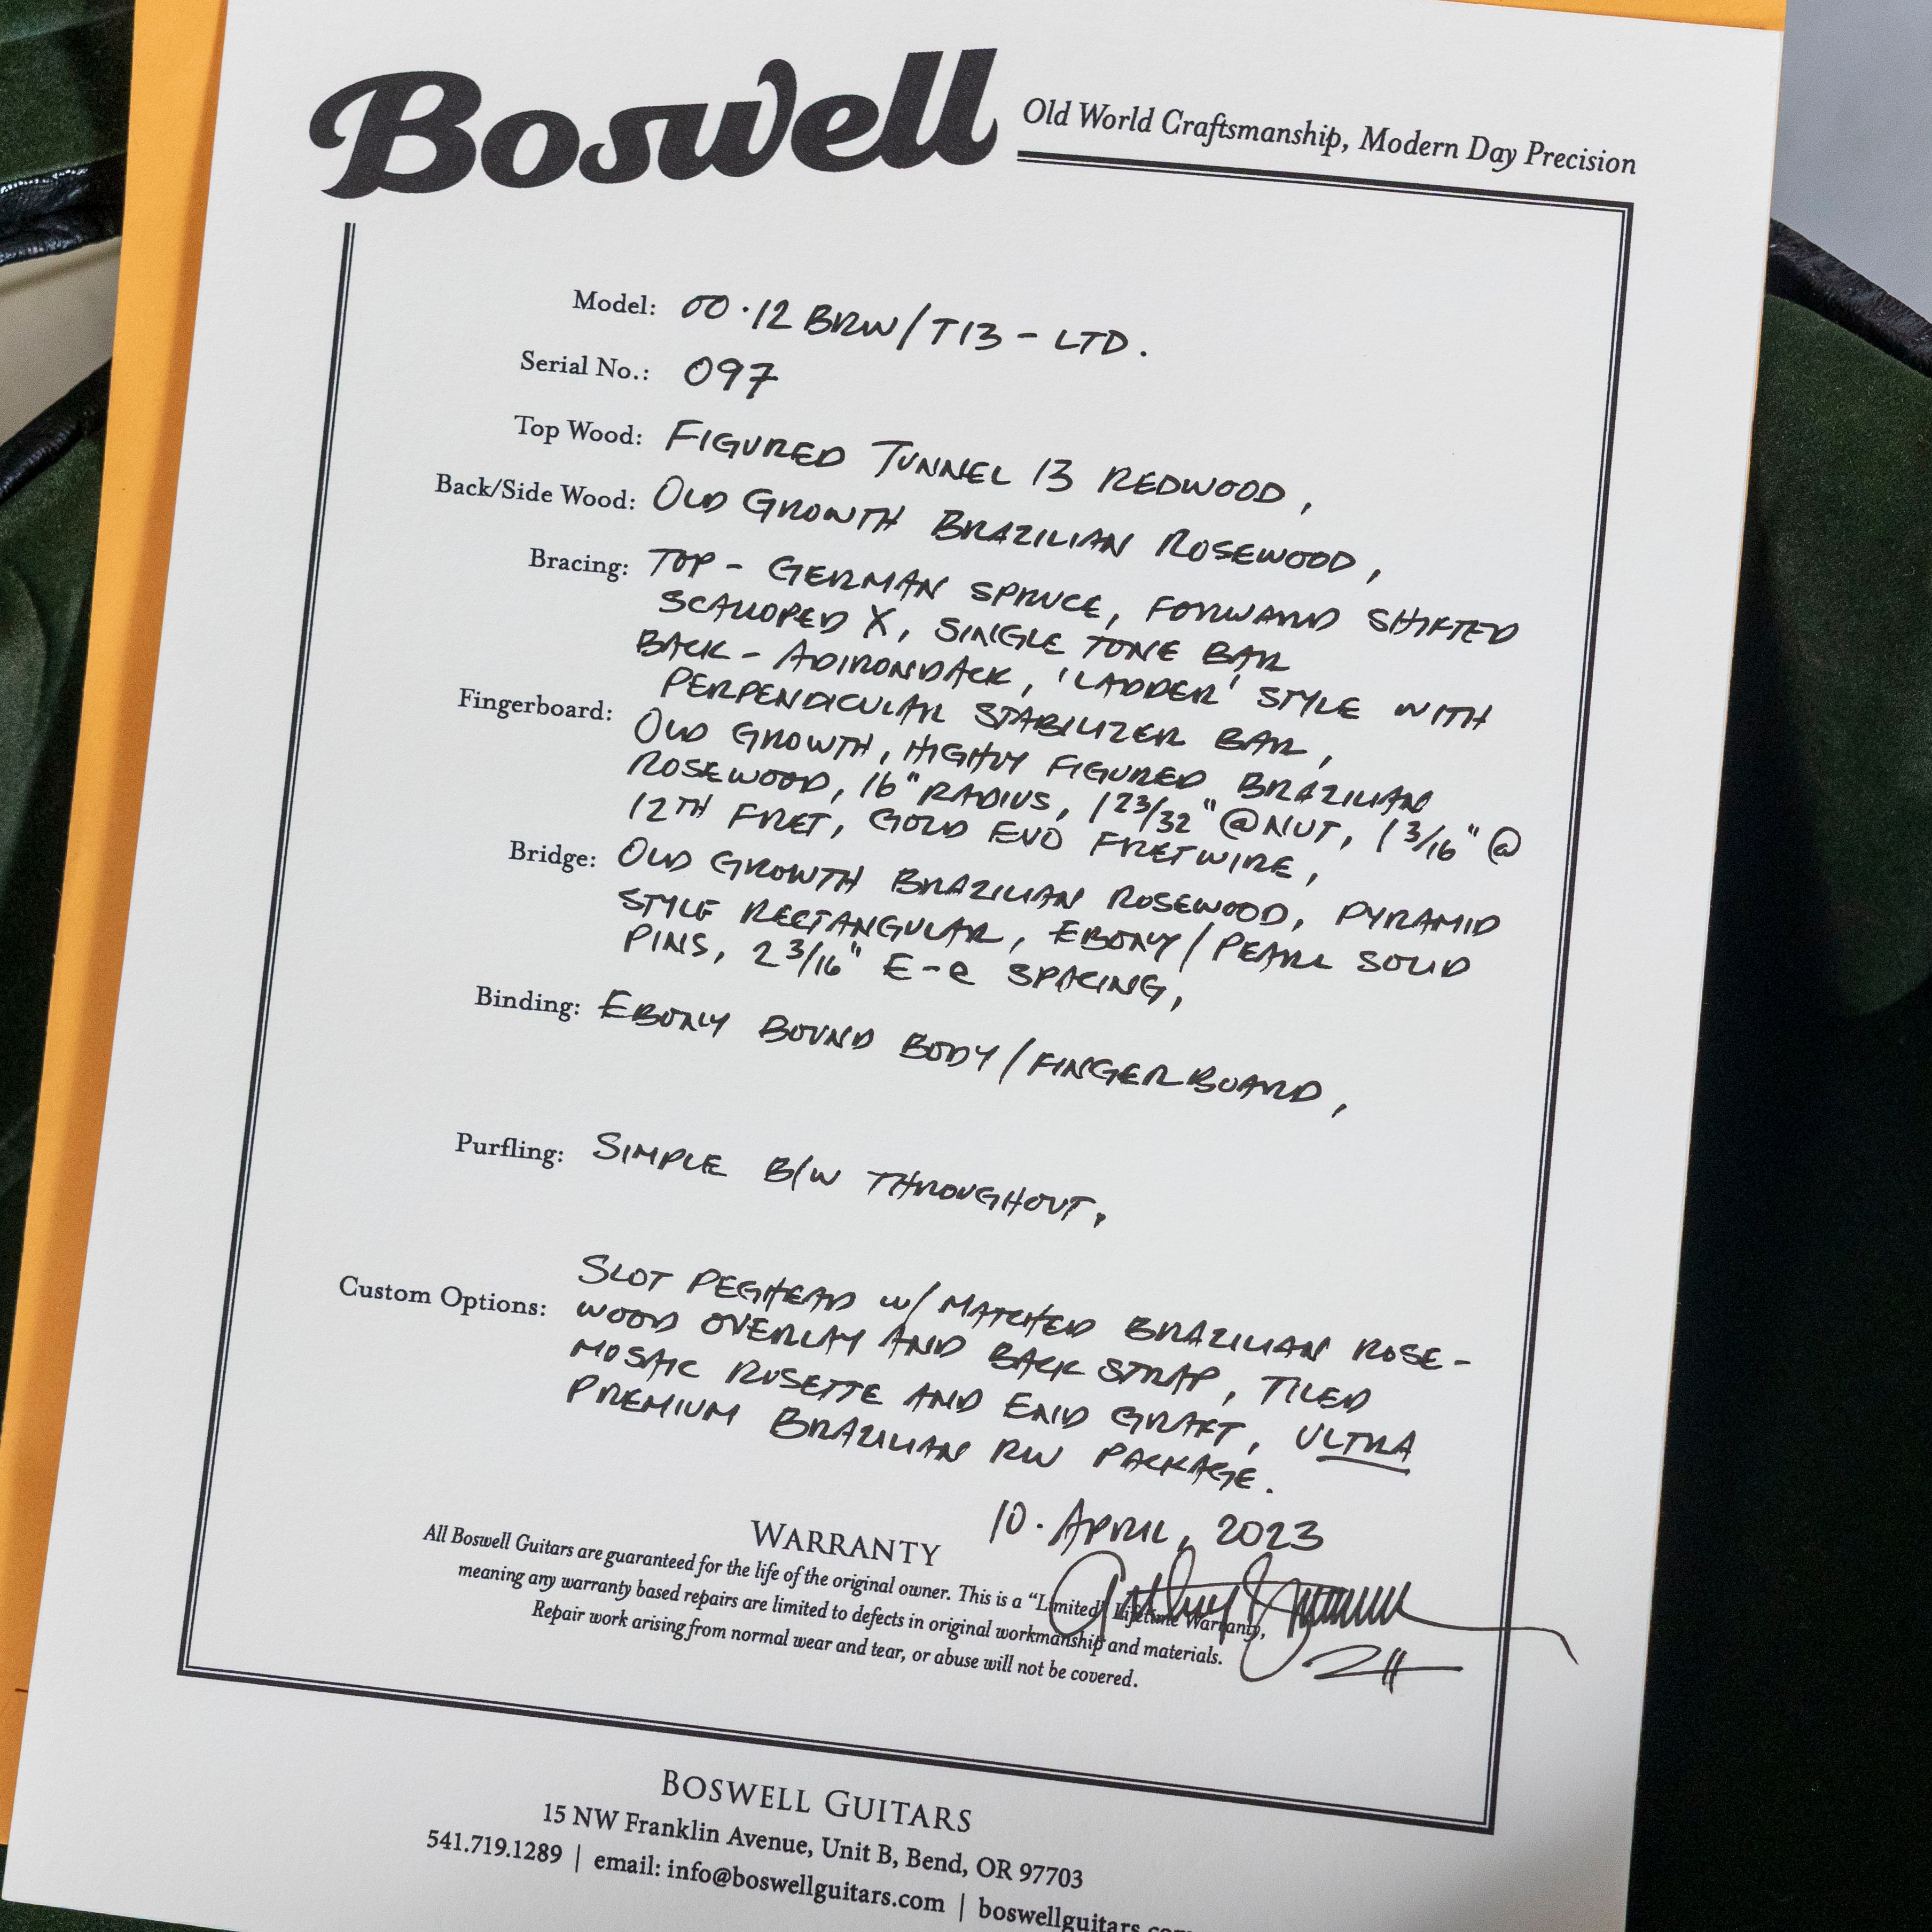 Boswell Old World Craftsmanship, Modern Day Precision
Model: 00·12 BRW/T13 - LTD.
Serial No.: 097
Top Wood: FIGURED TUNNEL 13 REDWOOD,
Back/Side Wood: OLD GROWTH BRAZILIAN ROSEWOOD,
Bracing: TOP - GERMAN SPRUCE, FORWARD SHIFTED
SCALLOPED X, SINGLE TONE BAR
BACK - ADIRONDACK, 'LADDER' STYLE WITH
PERPENDICULAR STABILIZER BAR,
Fingerboard: OLD GROWTH, HIGHLY FIGURED BRAZILIAN
ROSEWOOD, 16" RADIUS, 1 23/32" @ NUT, 1 3/16" @
12TH FRET, GOLD EVO FRETWIRE,
Bridge: OLD GROWTH BRAZILIAN ROSEWOOD, PYRAMID
STYLE RECTANGULAR, EBONY/PEARL SOLID
PINS, 2 3/16" E-e SPACING,
Binding: EBONY BOUND BODY/FINGERBOARD,
Purfling: SIMPLE B/W THROUGHOUT.
Custom Options: SLOT PEGHEAD W/ MATCHED BRAZILIAN ROSE-
WOOD OVERLAY AND BACK STRAP, TILED
MOSAIC ROSETTE AND END GRAFT, ULTRA
PREMIUM BRAZILIAN RW PACKAGE.
10. APRIL, 2023
WARRANTY
All Boswell Guitars are guaranteed for the life of the original owner. This is a "Limited" Lifetime Warranty,
meaning any warranty based repairs are limited to defects in original workmanship and materials.
Repair work arising from normal wear and tear, or abuse will not be covered.
BOSWELL GUITARS
15 NW Franklin Avenue, Unit B, Bend, OR 97703
541.719.1289 | email: info@boswellguitars.com | boswellguitars.co